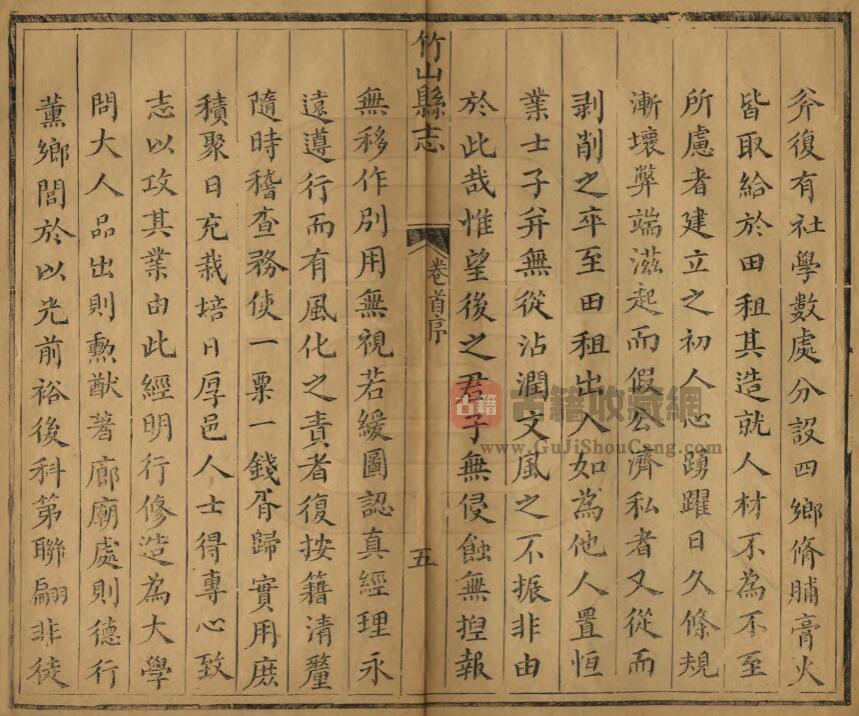 斧復有社學數處分設四鄉脩脯膏火
皆取給於田租其造就人材不為不至
所慮者建立之初人心踴躍日久條規
漸壞弊端滋起而假公濟私者又從而
剥削之卒至田租出入如為他人置恒
業士子并無從沾潤文風之不振非由
於此哉惟望後之君子無侵蝕無揑報
竹山縣志
卷首序
五
無移作別用無視若緩圖認真經理永
遠遵行而有風化之責者復按籍清釐
隨時稽查務使一粟一錢胥歸實用庶
積聚日充栽培日厚邑人士得專心致
志以攻其業由此經明行修造為大學
問大人品出則勲猷著廊廟處則德行
薰鄉閭於以光前裕後科第聯翩非徒
古籍
古籍收藏網
www.GuJiShouCang.com